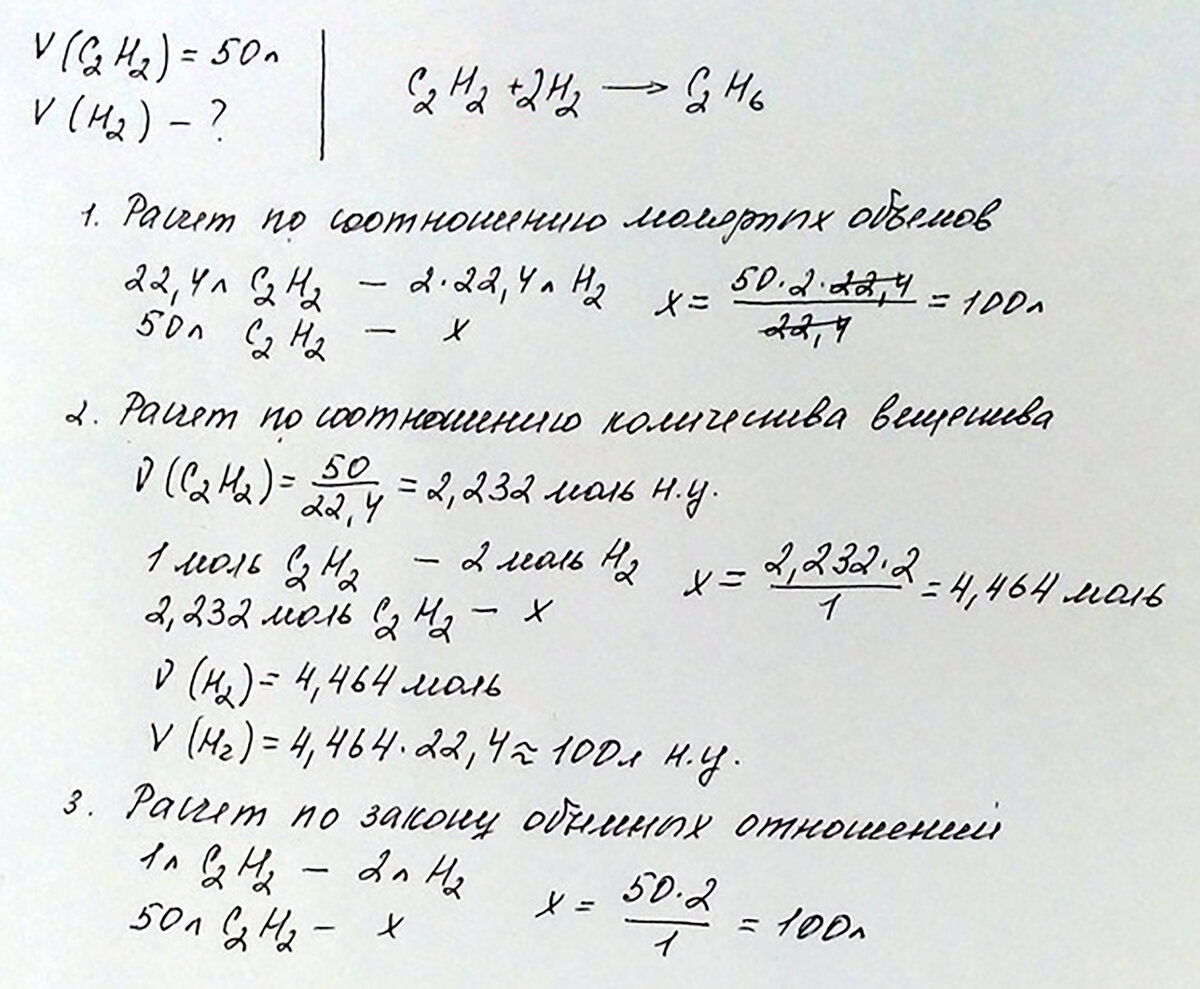 V(C₂H₂) = 50л
V(H₂) – ?
C₂H₂ + 2H₂ → C₂H₆
1. Расчет по соотношению молярных объемов
22,4л C₂H₂ – 2·22,4л H₂
50л C₂H₂ – x
x = (50·2·22,4)/(22,4) = 100л
2. Расчет по соотношению количества вещества
ν(C₂H₂) = 50/22,4 = 2,232 моль н.у.
1 моль C₂H₂ – 2 моль H₂
2,232 моль C₂H₂ – x
x = (2,232·2)/1 = 4,464 моль
ν(H₂) = 4,464 моль
V(H₂) = 4,464·22,4 ≈ 100л н.у.
3. Расчет по закону объемных отношений
1л C₂H₂ – 2л H₂
50л C₂H₂ – x
x = (50·2)/1 = 100л